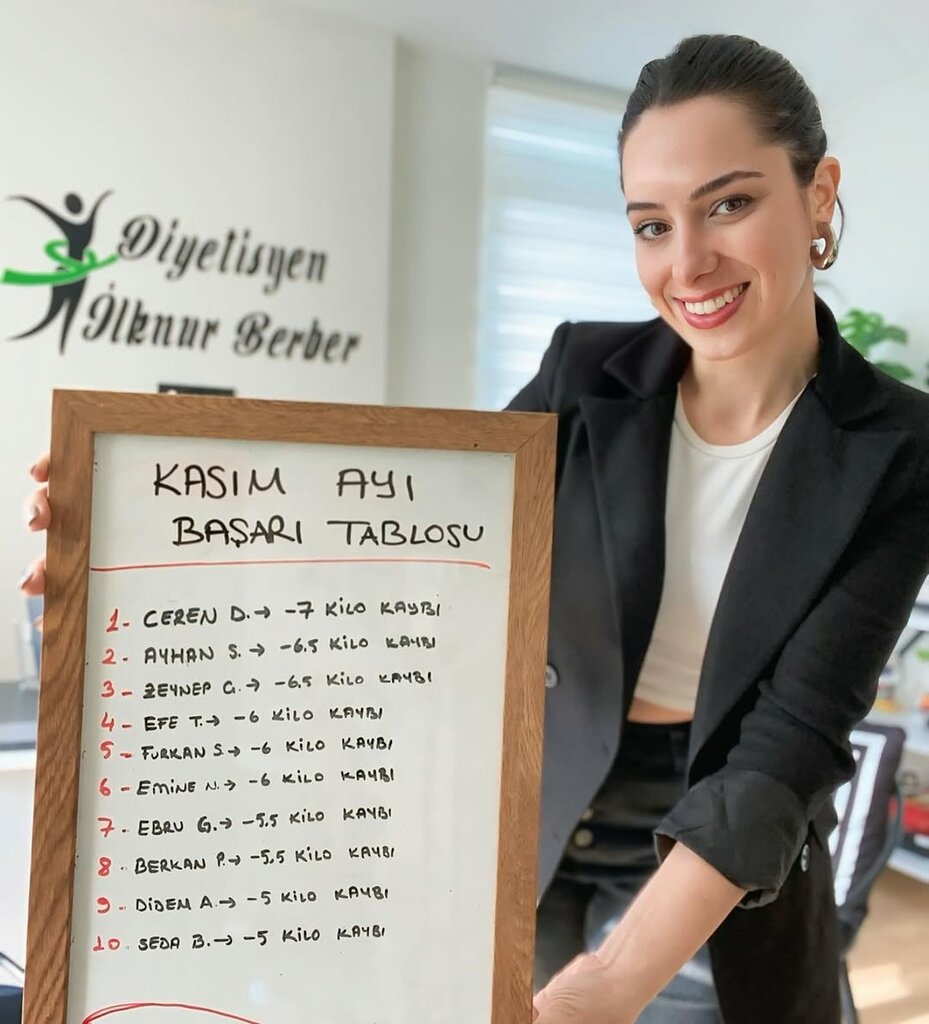 Diyetisyen
İlknur Berber
KASIM AYI
BAŞARI TABLOSU
1- CEREN D.→ -7 KİLO KAYBI
2- AYHAN S.→ -6.5 KİLO KAYBI
3- ZEYNEP G.→ -6,5 KİLO KAYBI
4- EFE T.→ -6 KİLO KAYBI
5- FURKAN S.→ -6 KİLO KAYBI
6- EMİNE N.→ -6 KİLO KAYBI
7- EBRU G.→ -5.5 KİLO KAYBI
8- BERKAN P.→ -5,5 KİLO KAYBI
9- DİDEM A.→ -5 KİLO KAYBI
10- SEDA B.→ -5 KİLO KAYBI